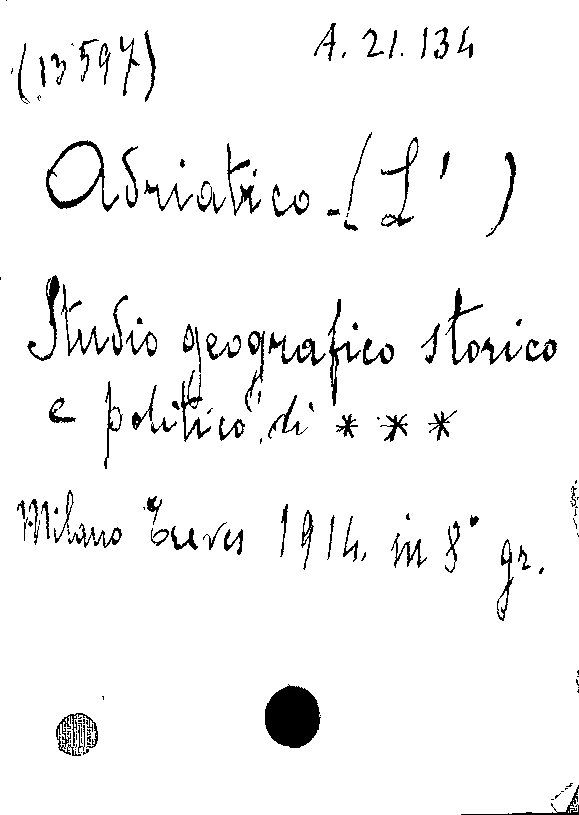 (13597)
A. 21. 134
Adriatico - (L')
Studio geografico storico
e politico di * * *
Milano Treves 1914. in 8° gr.